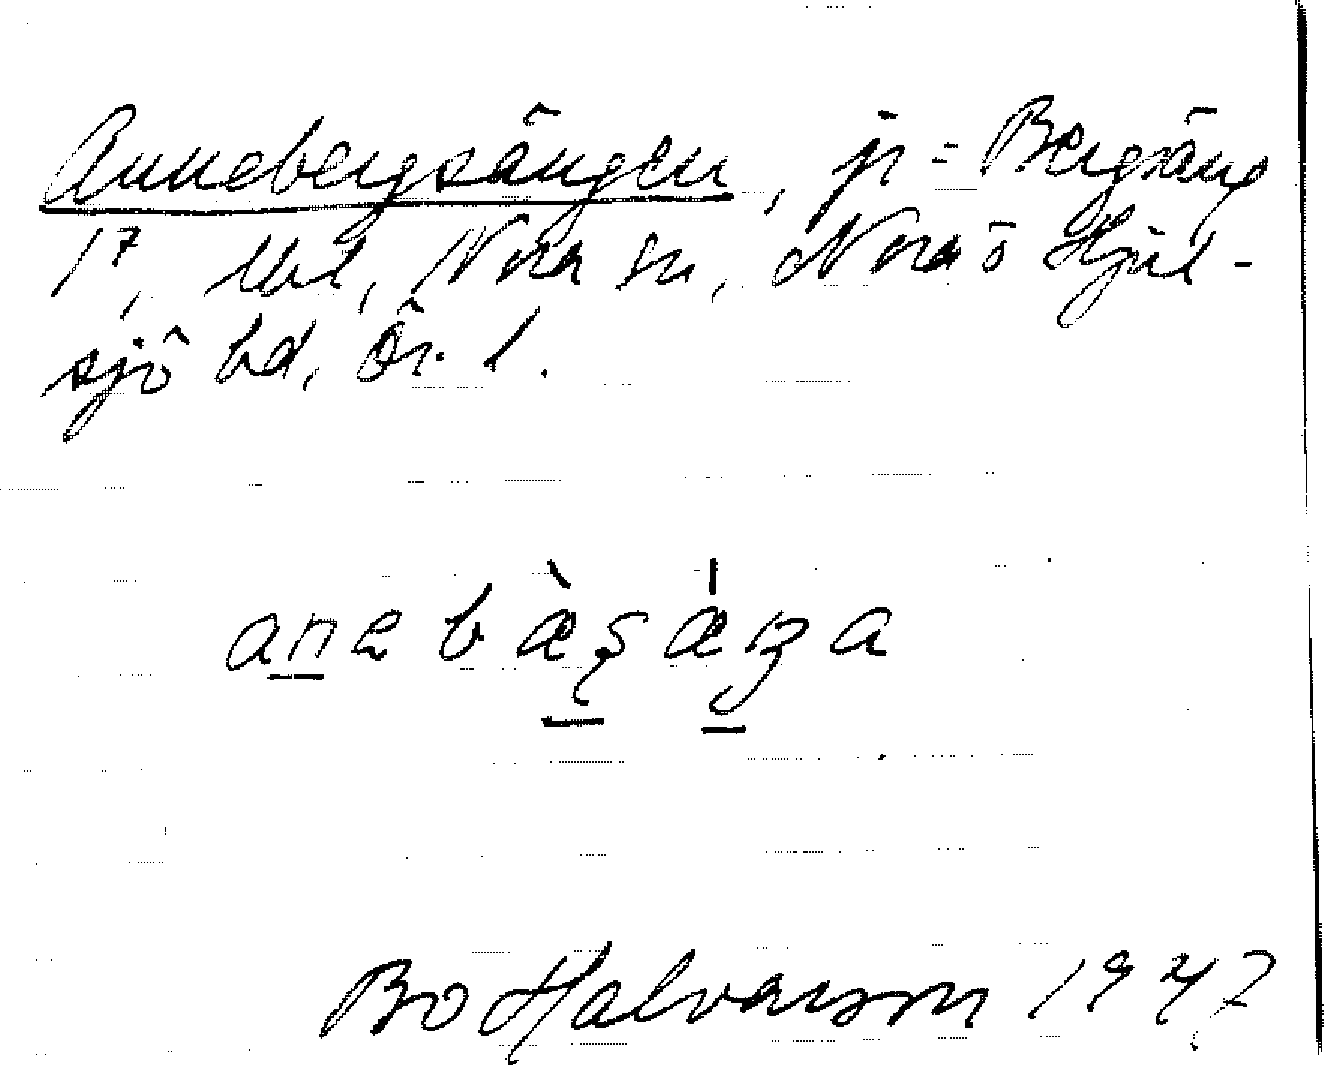 Annebergsängen, jr = Bergsäng
1⁷, Ubl, Nora sn, Nora ö Hjul-
sjö bd, Ör. l.
anebæ̀ʂæ̍ŋa
Bo Halvarson 1947